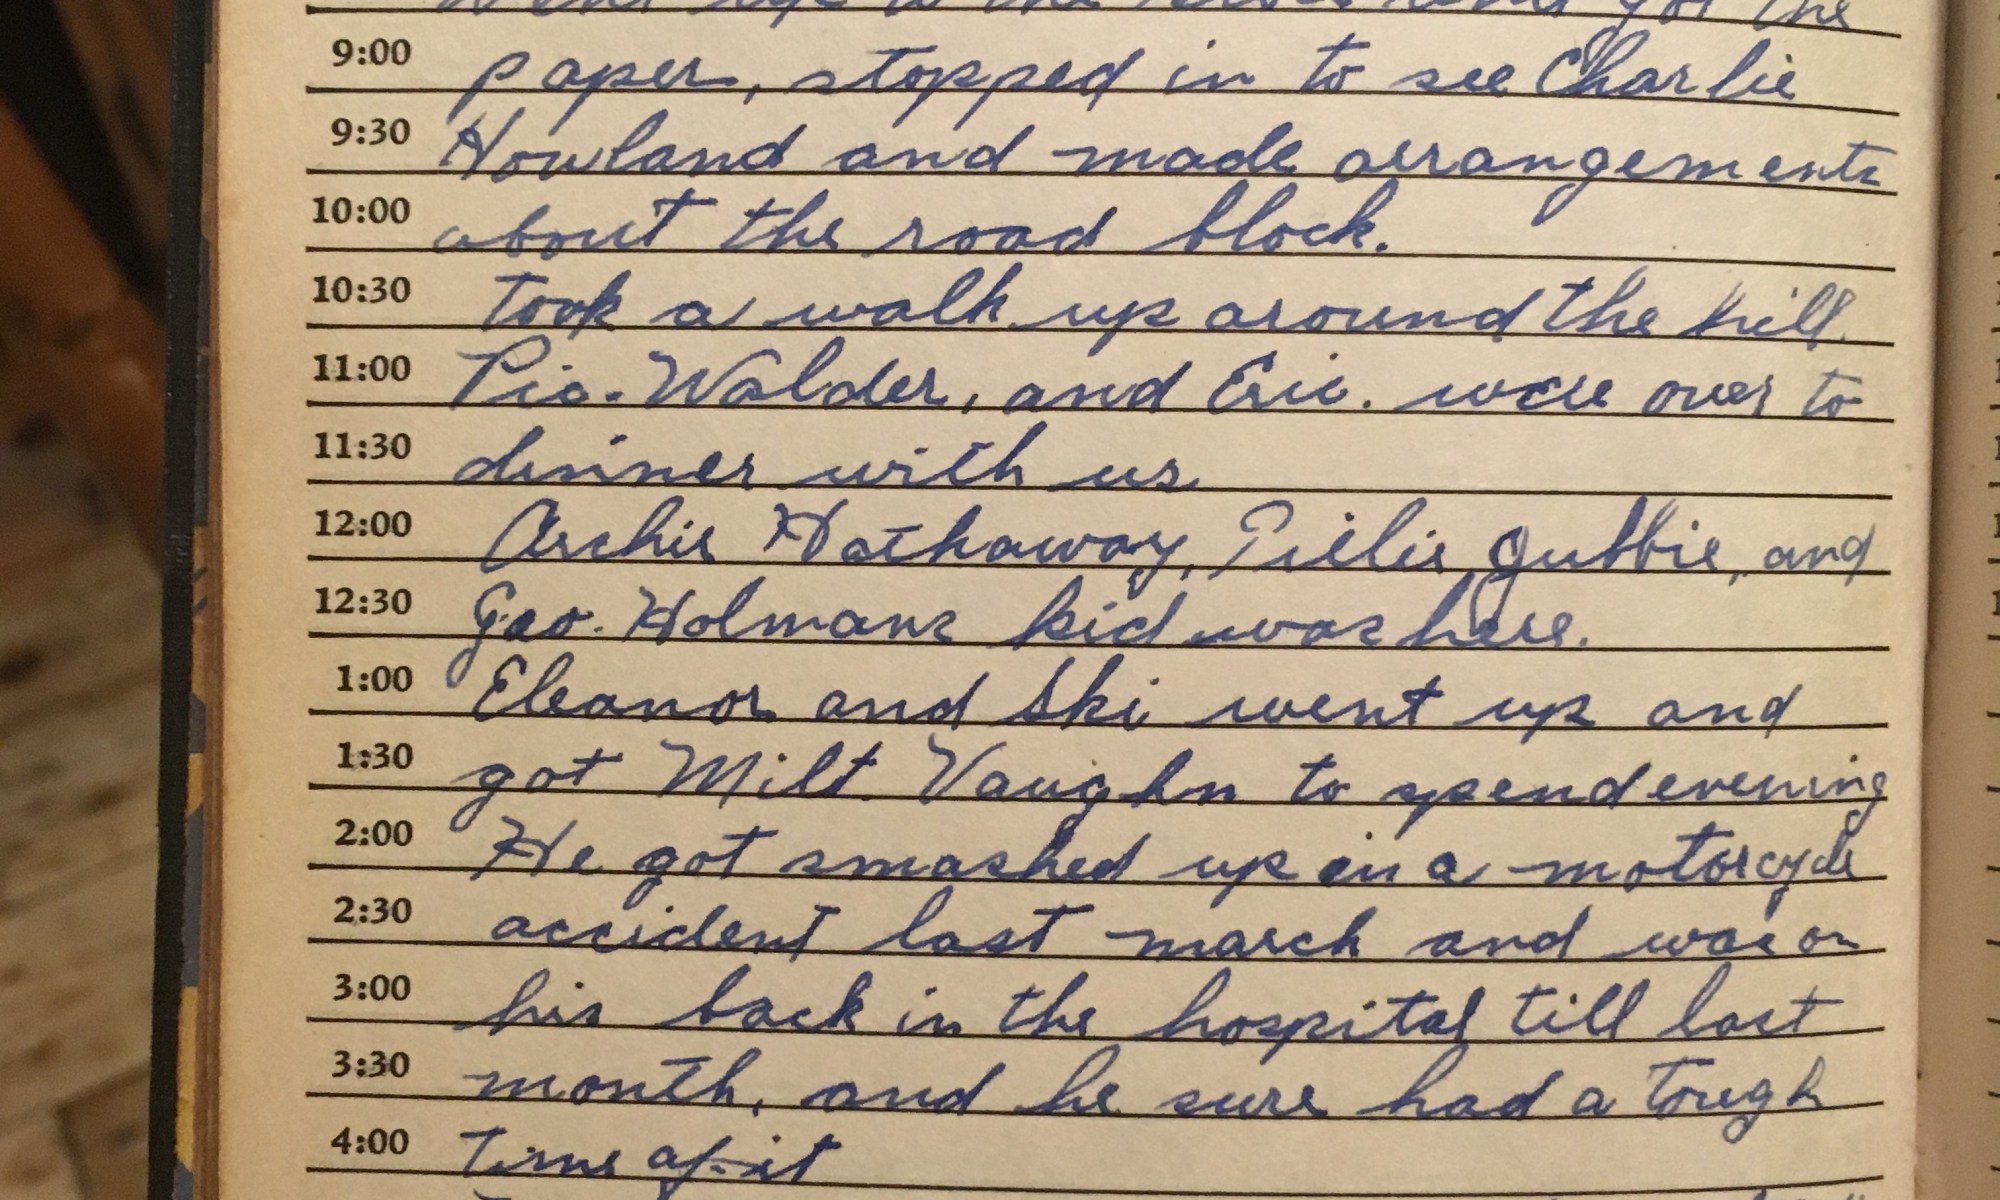 went up to the and got the
9:00 paper, stopped in to see Charlie
9:30 Howland and made arrangements
10:00 about the road block.
10:30 took a walk up around the hill.
11:00 Walder, and Eric. were over to
11:30 dinner with us
12:00 Archie Hathaway, and
12:30 Geo. Holmans kid was here.
1:00 Eleanor and Ski went up and
1:30 got Milt. Vaughn to spend evening
2:00 He got smashed up in a motorcycle
2:30 accident last march and was on
3:00 his back in the hospital till last
3:30 month, and he sure had a tough
4:00 Time of it